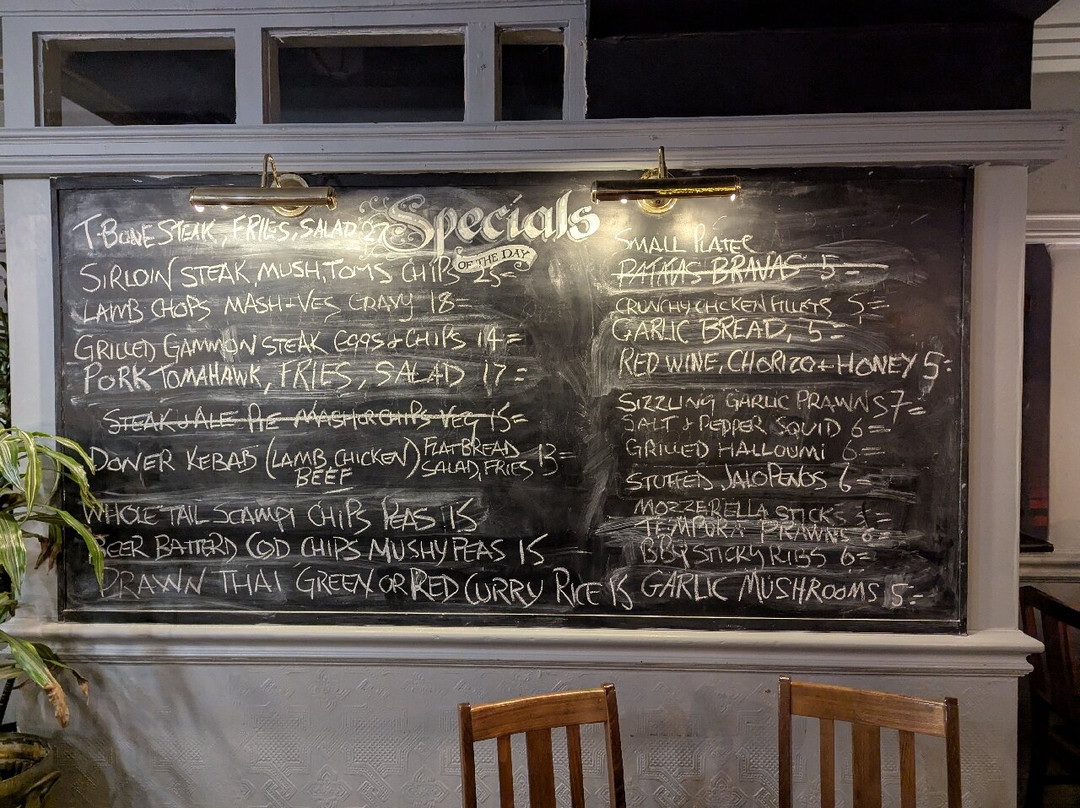 Specials
OF THE DAY
T-BONE STEAK, FRIES, SALAD 27
SIRLOIN STEAK, MUSH, TOMS CHIPS 25=
LAMB CHOPS MASH+VEG GRAVY 18=
GRILLED GAMMON STEAK EGGS+CHIPS 14=
PORK TOMAHAWK, FRIES, SALAD 17=
STEAK+ALE PIE MASH OR CHIPS VEG 15=
DONER KEBAB (LAMB, CHICKEN) FLATBREAD
BEEF SALAD, FRIES 13=
WHOLE TAIL SCAMPI CHIPS PEAS 15
BEER BATTERD COD CHIPS MUSHY PEAS 15
PRAWN THAI GREEN OR RED CURRY RICE 15
SMALL PLATES
PATATAS BRAVAS 5=
CRUNCHY CHICKEN FILLETS 5=
GARLIC BREAD, 5=
RED WINE, CHORIZO+HONEY 5=
SIZZLING GARLIC PRAWNS 7=
SALT+PEPPER SQUID 6=
GRILLED HALLOUMI 6=
STUFFED JALOPENOS 6=
MOZZERELLA STICKS
TEMPURA PRAWNS 6=
BBQ STICKY RIBS 6=
GARLIC MUSHROOMS 5=